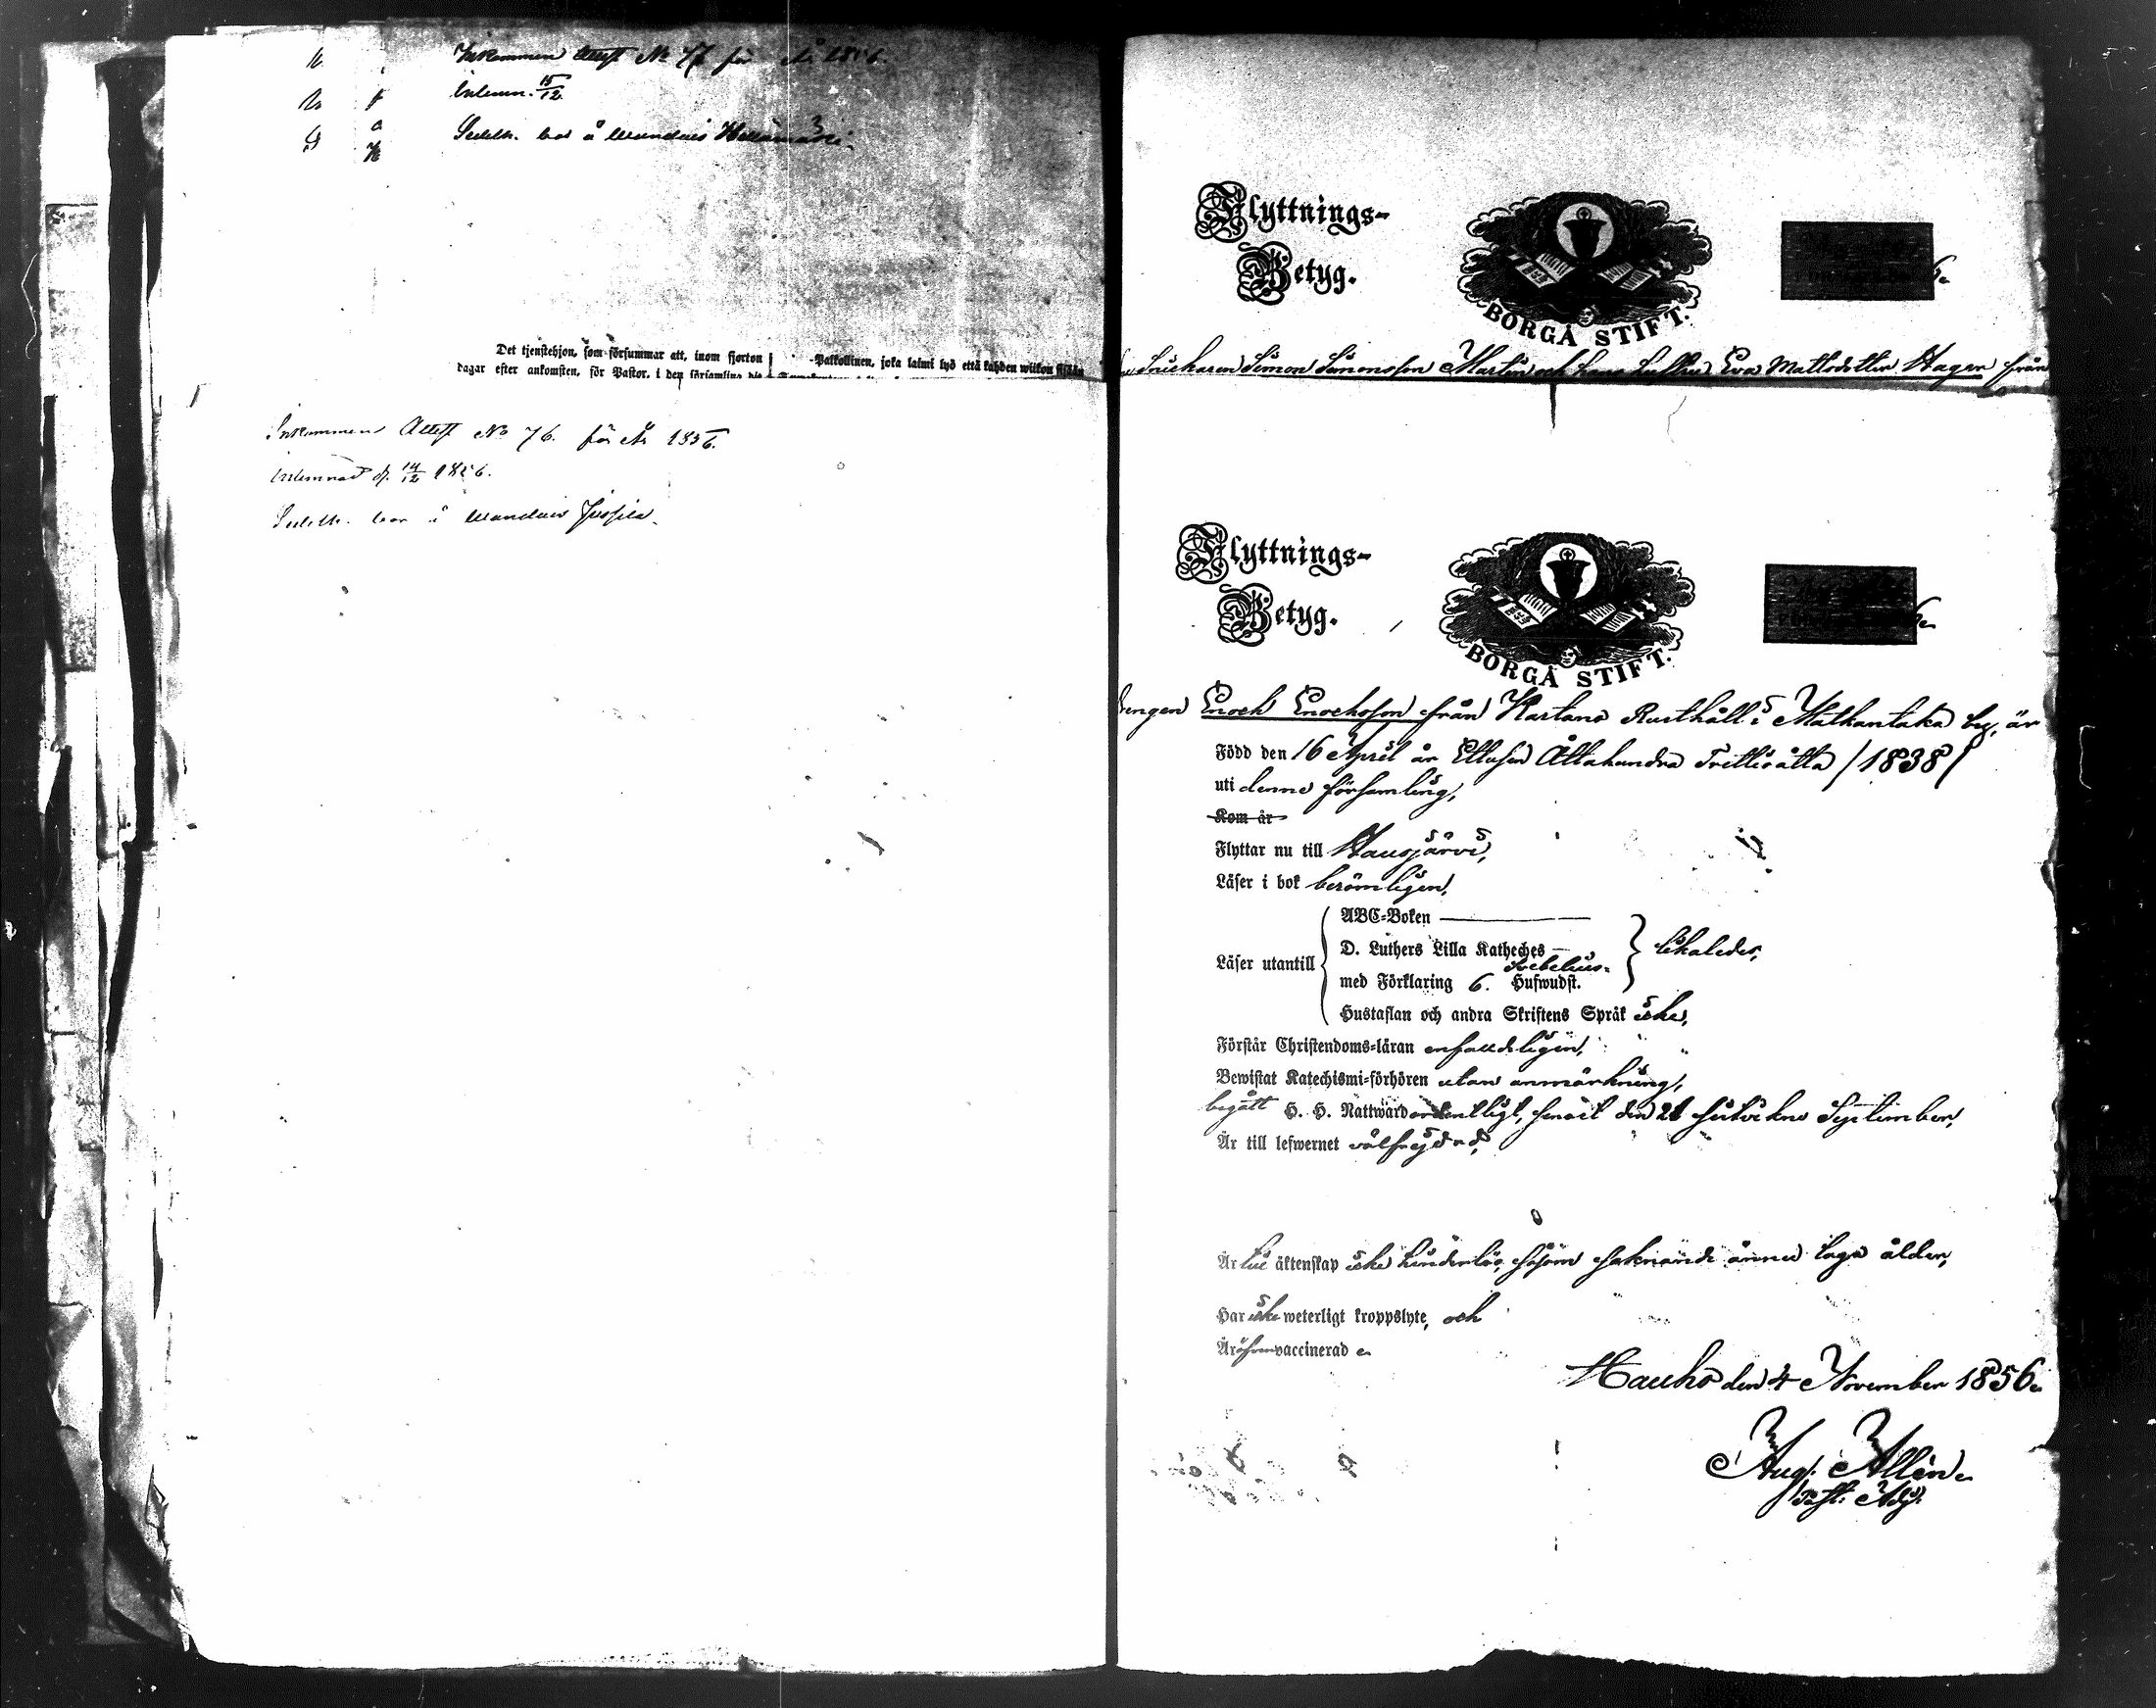 Inkommen Attest No 77 för År 1856.
Inlemn. 15/12
Sedeln. bor å
Det tjenstehjon, som försummar att, inom fjorton
dagar efter ankomsten, för Pastor, i den församling
Palkollinen, joka laimi lyö että kahden wiikon sisään
Inkommen Attest No 76. för År 1856.
Inlemnad d. 14/12 1856.
Sedeln. bor i
Flyttnings-
Betyg.
BORGÅ STIFT.
Snickaren Simon Simonsson Martin och hans hustru Eva Mattsdotter Hagen från
Flyttnings-
Betyg.
BORGÅ STIFT.
Drengen Enoch Enochsson från Kartano Rusthåll i Matkantaka by, är
Född den 16 April år Ettusen Åttahundra Trettioåtta /1838/
uti denne församling,
Kom år
Flyttar nu till Hausjärvi,
Läser i bok berömligen,
ABC-Boken
Läser utantill
D. Luthers Lilla Katheches
likaledes,
Svebelius
med Förklaring 6. Hufwudst.
Hustaflan och andra Skriftens Språk icke,
Förstår Christendoms-läran enfaldeligen,
Bewistat Katechismi-förhören utan anmärkning,
begått H. H. Nattward ordentligt, senast den 21 sistvikne September,
Är till lefwernet välfrejdad,
Är till äktenskap icke hinderlös, såsom saknande ännu laga ålder,
Har icke weterligt kroppslyte, och
Är äfven vaccinerad
Hauho den 4 November 1856.
Aug. Allén
Past. Adj.